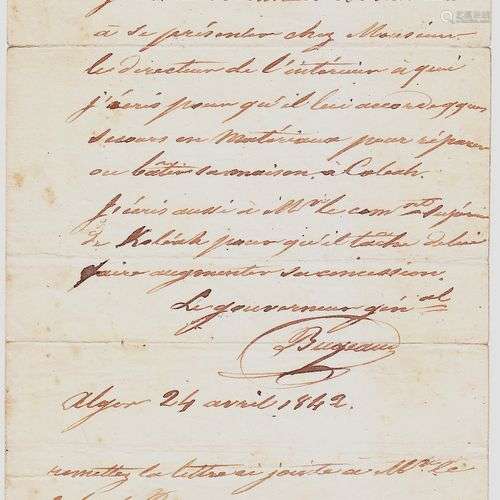 à se présenter chez Monsieur
le directeur de l'intérieur à qui
j'écris pour qu'il lui accorde qques
secours en matériaux pour réparer
ou bâtir sa maison à Coleah.
J'écris aussi à Mr. le comnt supér
de Koléah pour qu'il tâche de lui
faire augmenter sa concession.
Le gouverneur gén al
Bugeaud
Alger 24 avril 1842.
remettez la lettre ci jointe à Mr. le